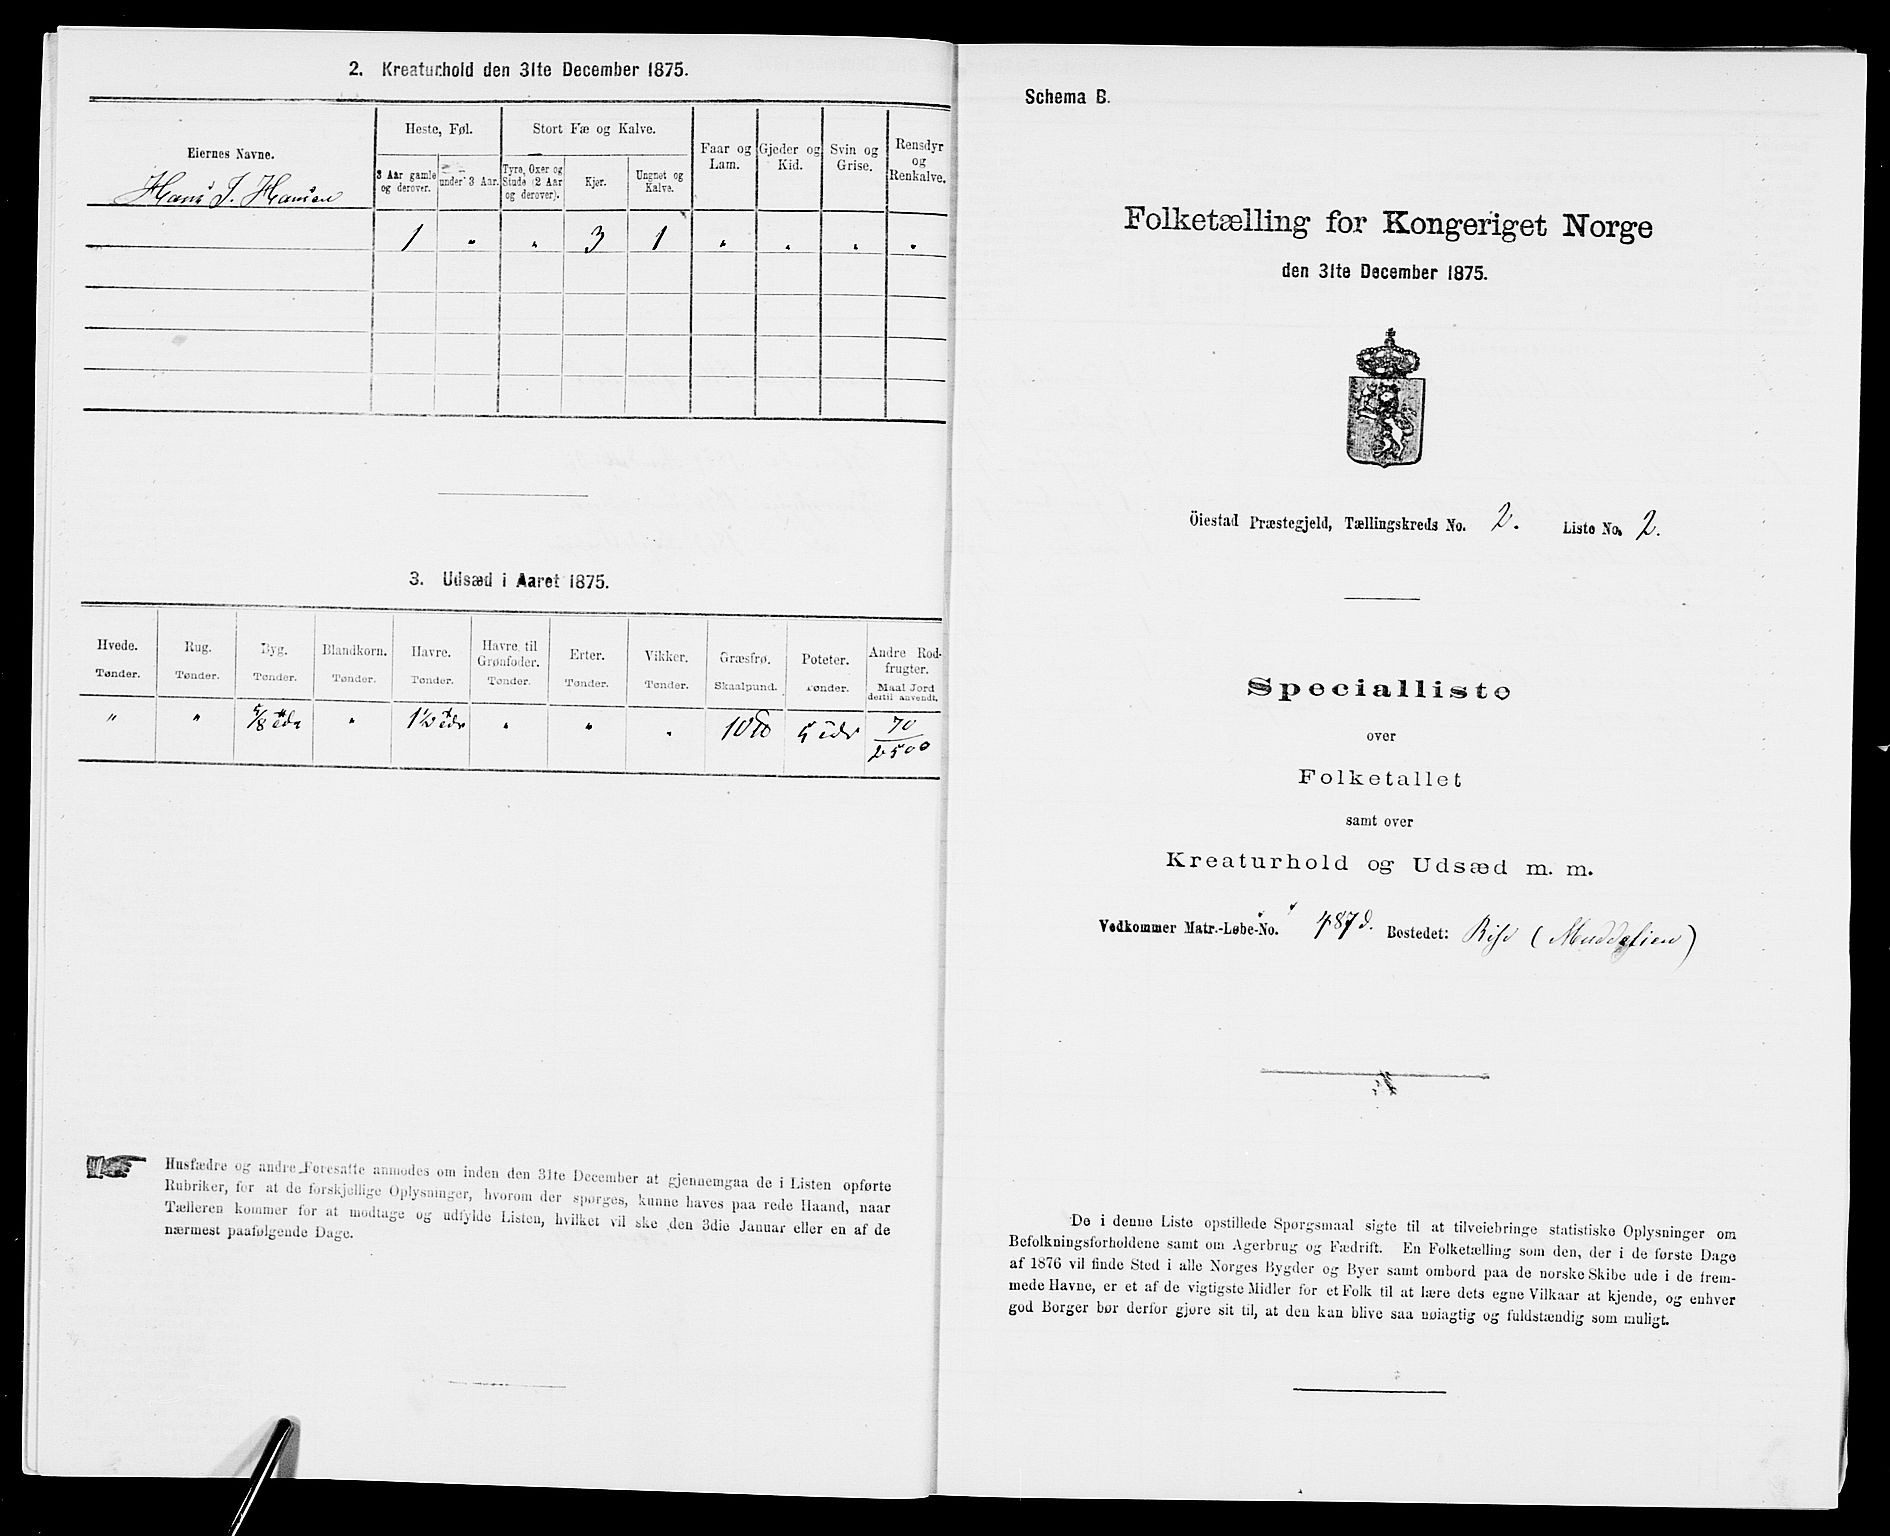 2. Kreaturhold den 31te December 1875.
Eiernes Navne.
Heste, Føl.
Stort Fæ og Kalve.
Faar og Lam.
Gjeder og Kid.
Svin og Grise.
Rensdyr og Renkalve.
3 Aar gamle og derover.
under 3 Aar.
Tyre, Oxer og Stude (2 Aar og derover).
Kjør.
Ungnøt og Kalve.
Hans J. Hansen
1 " " 3 1 " " " "
3. Udsæd i Aaret 1875.
Hvede. Rug. Byg. Blandkorn. Havre. Havre til Grønfoder. Erter. Vikker. Græsfrø. Poteter. Andre Rodfrugter.
Tønder. Tønder. Tønder. Tønder. Tønder. Tønder. Tønder. Tønder. Skaalpund. Tønder. Maal Jord dertil anvendt.
" " 5/8 " 1½ " " " 10 70/2500
Husfædre og andre Foresatte anmodes om inden den 31te December at gjennemgaa de i Listen opførte
Rubriker, for at de forskjellige Oplysninger, hvorom der spørges, kunne haves paa rede Haand, naar
Tælleren kommer for at modtage og udfylde Listen, hvilket vil ske den 3die Januar eller en af de
nærmest paafølgende Dage.
Schema B.
Folketælling for Kongeriget Norge
den 31te December 1875.
Öiestad Præstegjeld, Tællingskreds No. 2. Liste No. 2.
Specialliste
over
Folketallet
samt over
Kreaturhold og Udsæd m. m.
Vedkommer Matr.-Løbe-No. 487d. Bostedet: Rise (
De i denne Liste opstillede Spørgsmaal sigte til at tilveiebringe statistiske Oplysninger om
Befolkningsforholdene samt om Agerbrug og Fædrift. En Folketælling som den, der i de første Dage
af 1876 vil finde Sted i alle Norges Bygder og Byer samt ombord paa de norske Skibe ude i de frem-
mede Havne, er et af de vigtigste Midler for et Folk til at lære dets egne Vilkaar at kjende, og enhver
god Borger bør derfor gjøre sit til, at den kan blive saa nøiagtig og fuldstændig som muligt.